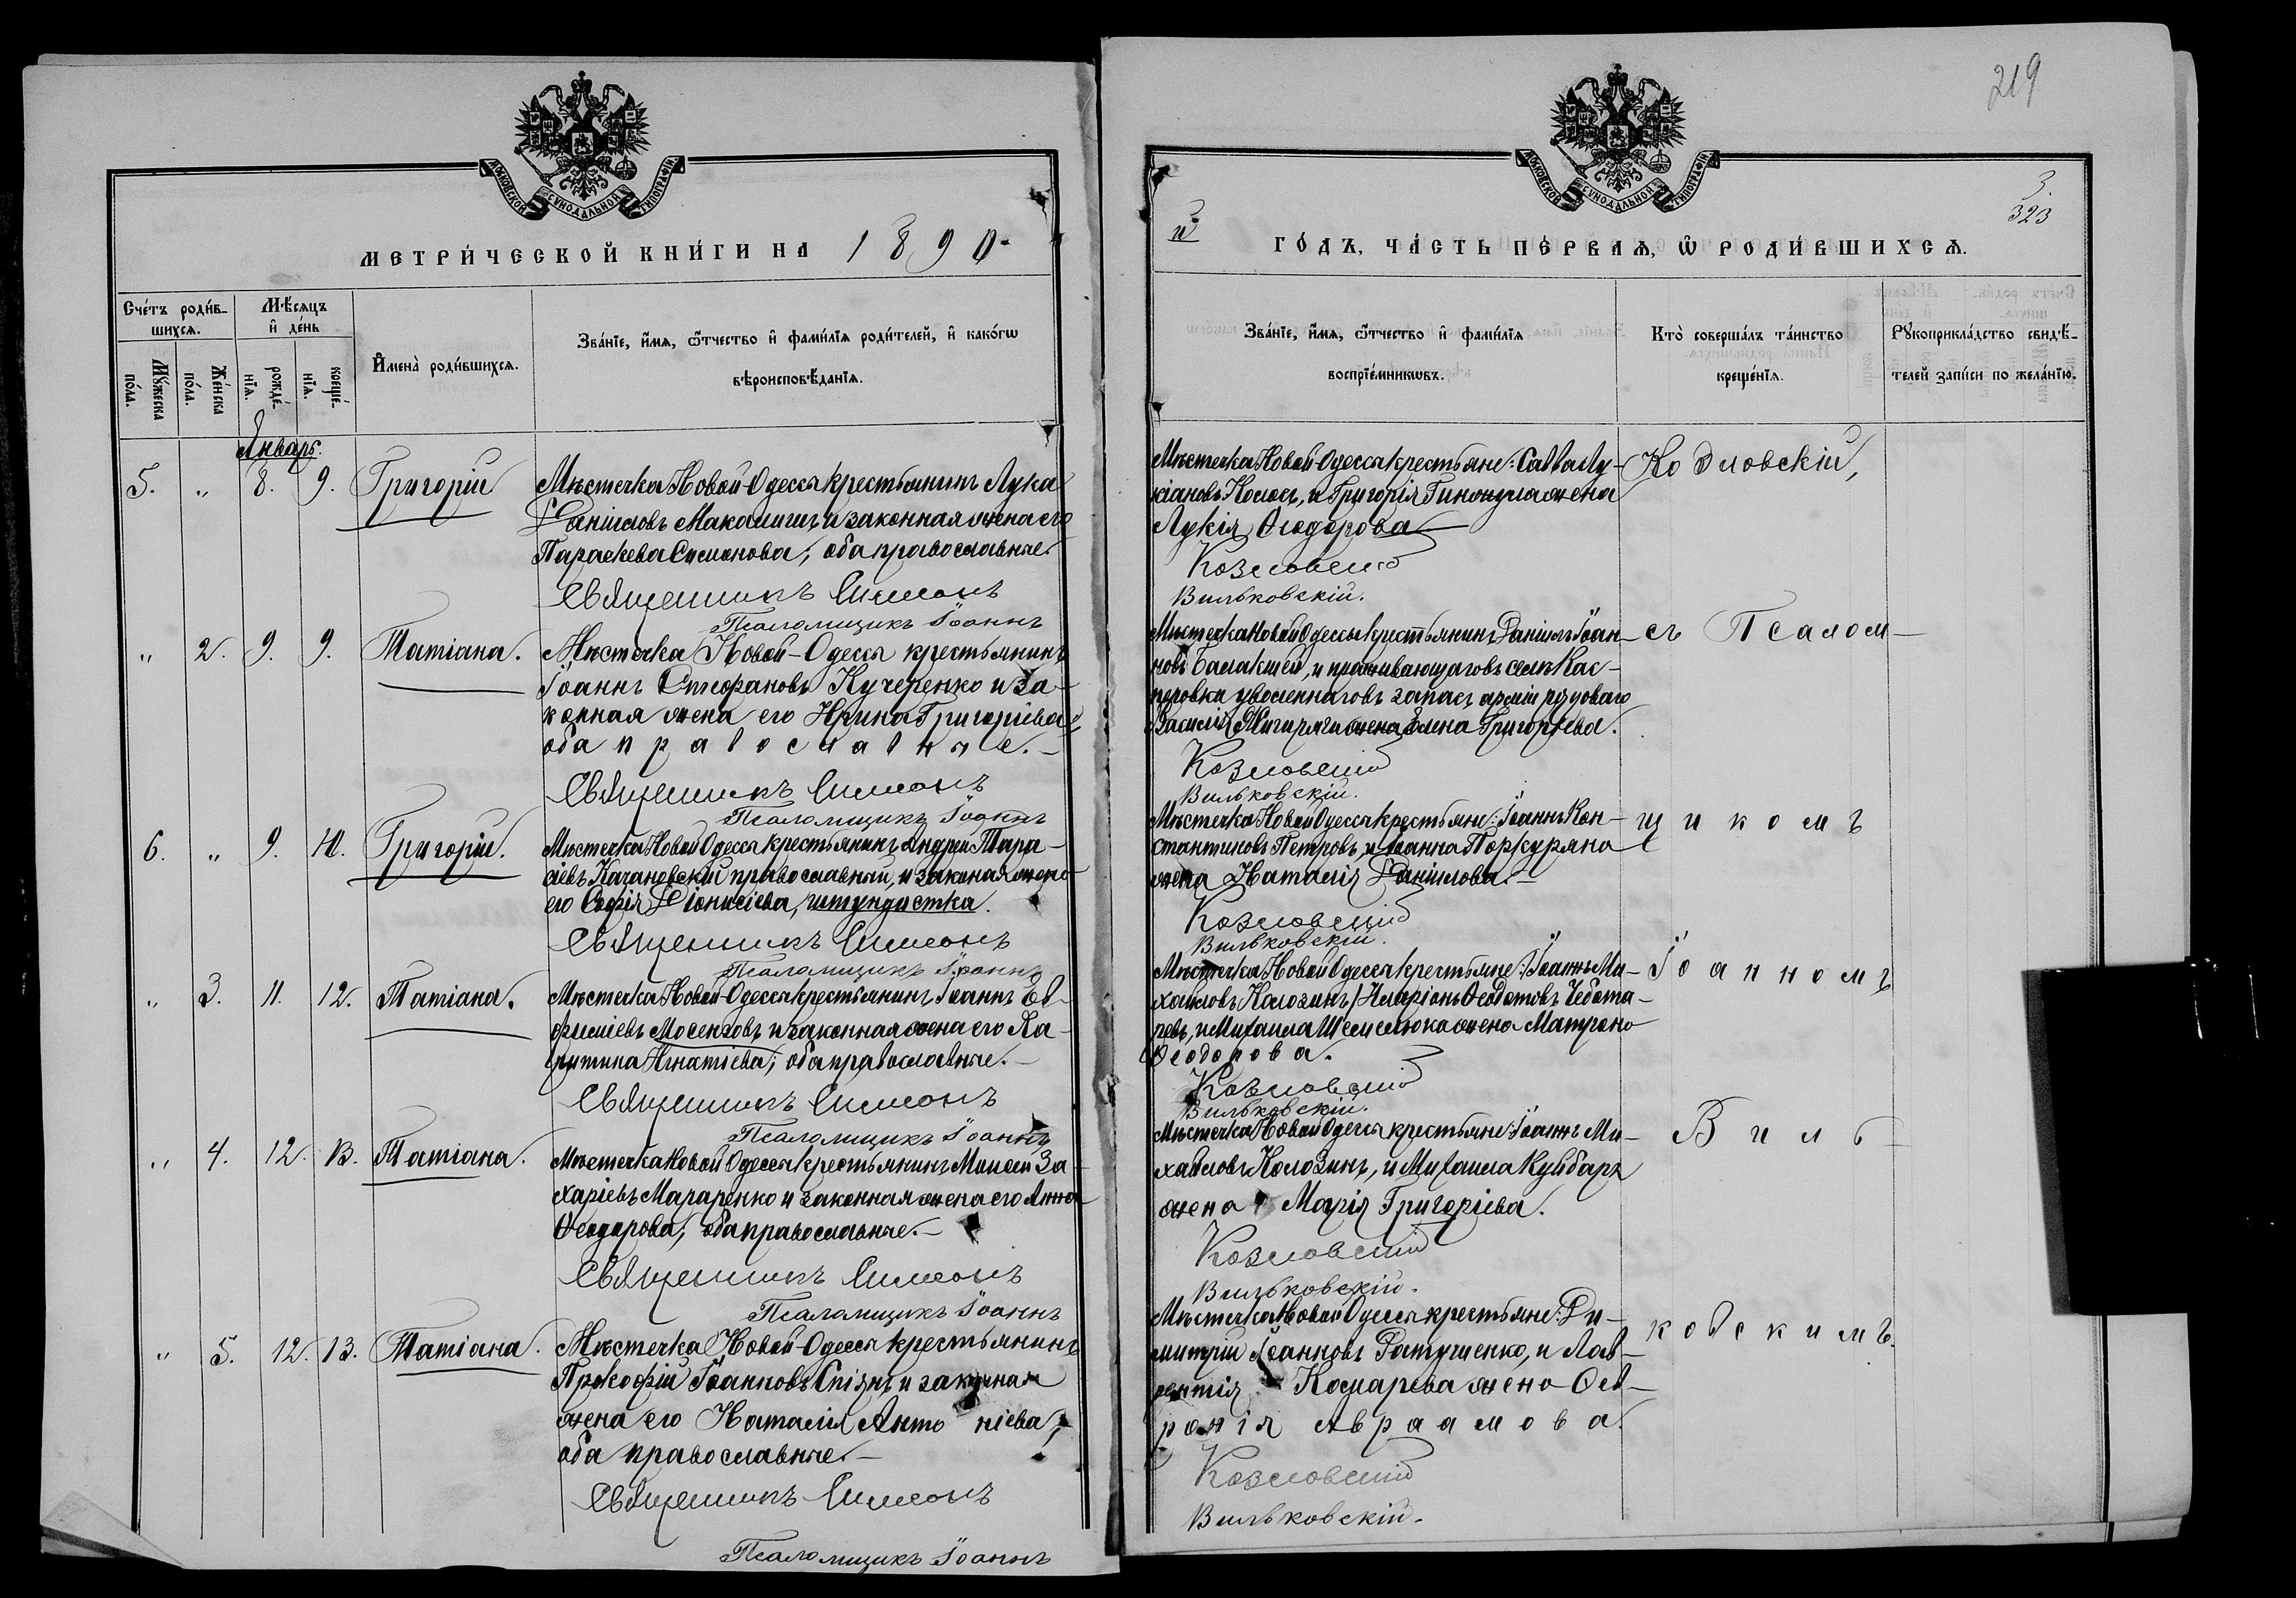 МОСКОВСКОЙ СѴНОДАЛЬНОЙ ТИПОГРАФІИ
МЕТРИЧЕСКОЙ КНИГИ НА 1890
Счетъ родив-
шихся.
Мужеска
пола.
Женска
пола.
Мѣсяцъ
и день
рожде-
нія.
креще-
нія.
Имена родившихся.
Званіе, имя, ѿтчество и фамилія родителей, и какогѡ
вѣроисповѣданія.
Январь.
5. „ 8. 9. Григорій
Мѣстечка Новой-Одессы крестьянинъ Лука
Даніиловъ и законная жена его
Параскева Симонова, оба православные.
Священникъ Симеонъ
Псаломщикъ Іоаннъ
„ 2. 9. 9. Татіана.
Мѣстечка Новой-Одессы крестьянинъ
Іоаннъ Стефановъ Кучеренко и за-
конная жена его Ирина Григоріева,
оба православные.-
Священникъ Симеонъ
Псаломщикъ Іоаннъ
6. „ 9. 10. Григорій.
Мѣстечка Новой Одессы крестьянинъ Андрей Тара-
сіевъ Качановскій православный, и законая жена
его Софія Діонисіева, штундистка.
Священникъ Симеонъ
Псаломщикъ Іоаннъ
„ 3. 11. 12. Татіана.
Мѣстечка Новой-Одессы крестьянинъ Іоаннъ Ев-
фиміевъ Мосензовъ и законная жена его Ха-
ритина Игнатіева, оба православные.-
Священникъ Симеонъ
Псаломщикъ Іоаннъ
„ 4. 12. 13. Татіана.
Мѣстечка Новой Одессы крестьянинъ Моисей За-
харіевъ Мараренко и законная жена его Анна
Ѳеодорова, оба православные.-
Священникъ Симеонъ
Псаломщикъ Іоаннъ
„ 5. 12. 13. Татіана.
Мѣстечка Новой-Одессы крестьянинъ
Прокофій Іоанновъ и законная
жена его Наталія Антоніева,
оба православные.-
Священникъ Симеонъ
Псаломщикъ Іоаннъ
219
3.
323
МОСКОВСКОЙ СѴНОДАЛЬНОЙ ТИПОГРАФІИ
й
ГОДЪ, ЧАСТЬ ПЕРВАЯ, Ѡ РОДИВШИХСЯ.
Званіе, имя, ѿтчество и фамилія
воспріемникѡвъ.
Кто совершалъ таинство
крещенія.
Рукоприкладство свидѣ-
телей записи по желанію.
Мѣстечка Новой-Одессы крестьяне: Савва Лу-
кіановъ Колосъ, и Григорія жена
Лукія Ѳеодорова
Козловскій
Вильковскій.
Козловскій,
Мѣстечка Новой Одессы крестьянинъ Даніилъ Іоан-
новъ Балакшей, и проживающаго въ селѣ Кас-
перовки уволеннаго въ запасъ арміи рядоваго
Василія жена Елена Григорьева.
Козловскій
Вильковскій.
съ Псалом-
Мѣстечка Новой Одессы крестьяне: Іоаннъ Кон-
стантиновъ Петровъ, и Іоанна Поркуряна
жена Наталія Даніилова.-
Козловскій
Вильковскій.
щикомъ
Мѣстечка Новой Одессы крестьяне: Іоаннъ Ми-
хайловъ Колозинъ, Иларіонъ Ѳеодотовъ Чебота-
ревъ, и Михаила Шемелюка жена Матрона
Ѳеодорова.
Козловскій
Вильковскій.
Іоанномъ
Мѣстечка Новой Одессы крестьяне: Іоаннъ Ми-
хайловъ Колозинъ, и Михаила Куйбаръ
жена Марія Григоріева.
Козловскій
Вильковскій.
Виль-
Мѣстечка Новой Одессы крестьяне: Ди-
митрій Іоанновъ Ратушенко, и Лав-
рентія Комарева жена Фев-
ронія Авраамова.
Козловскій
Вильковскій.
ковскимъ.